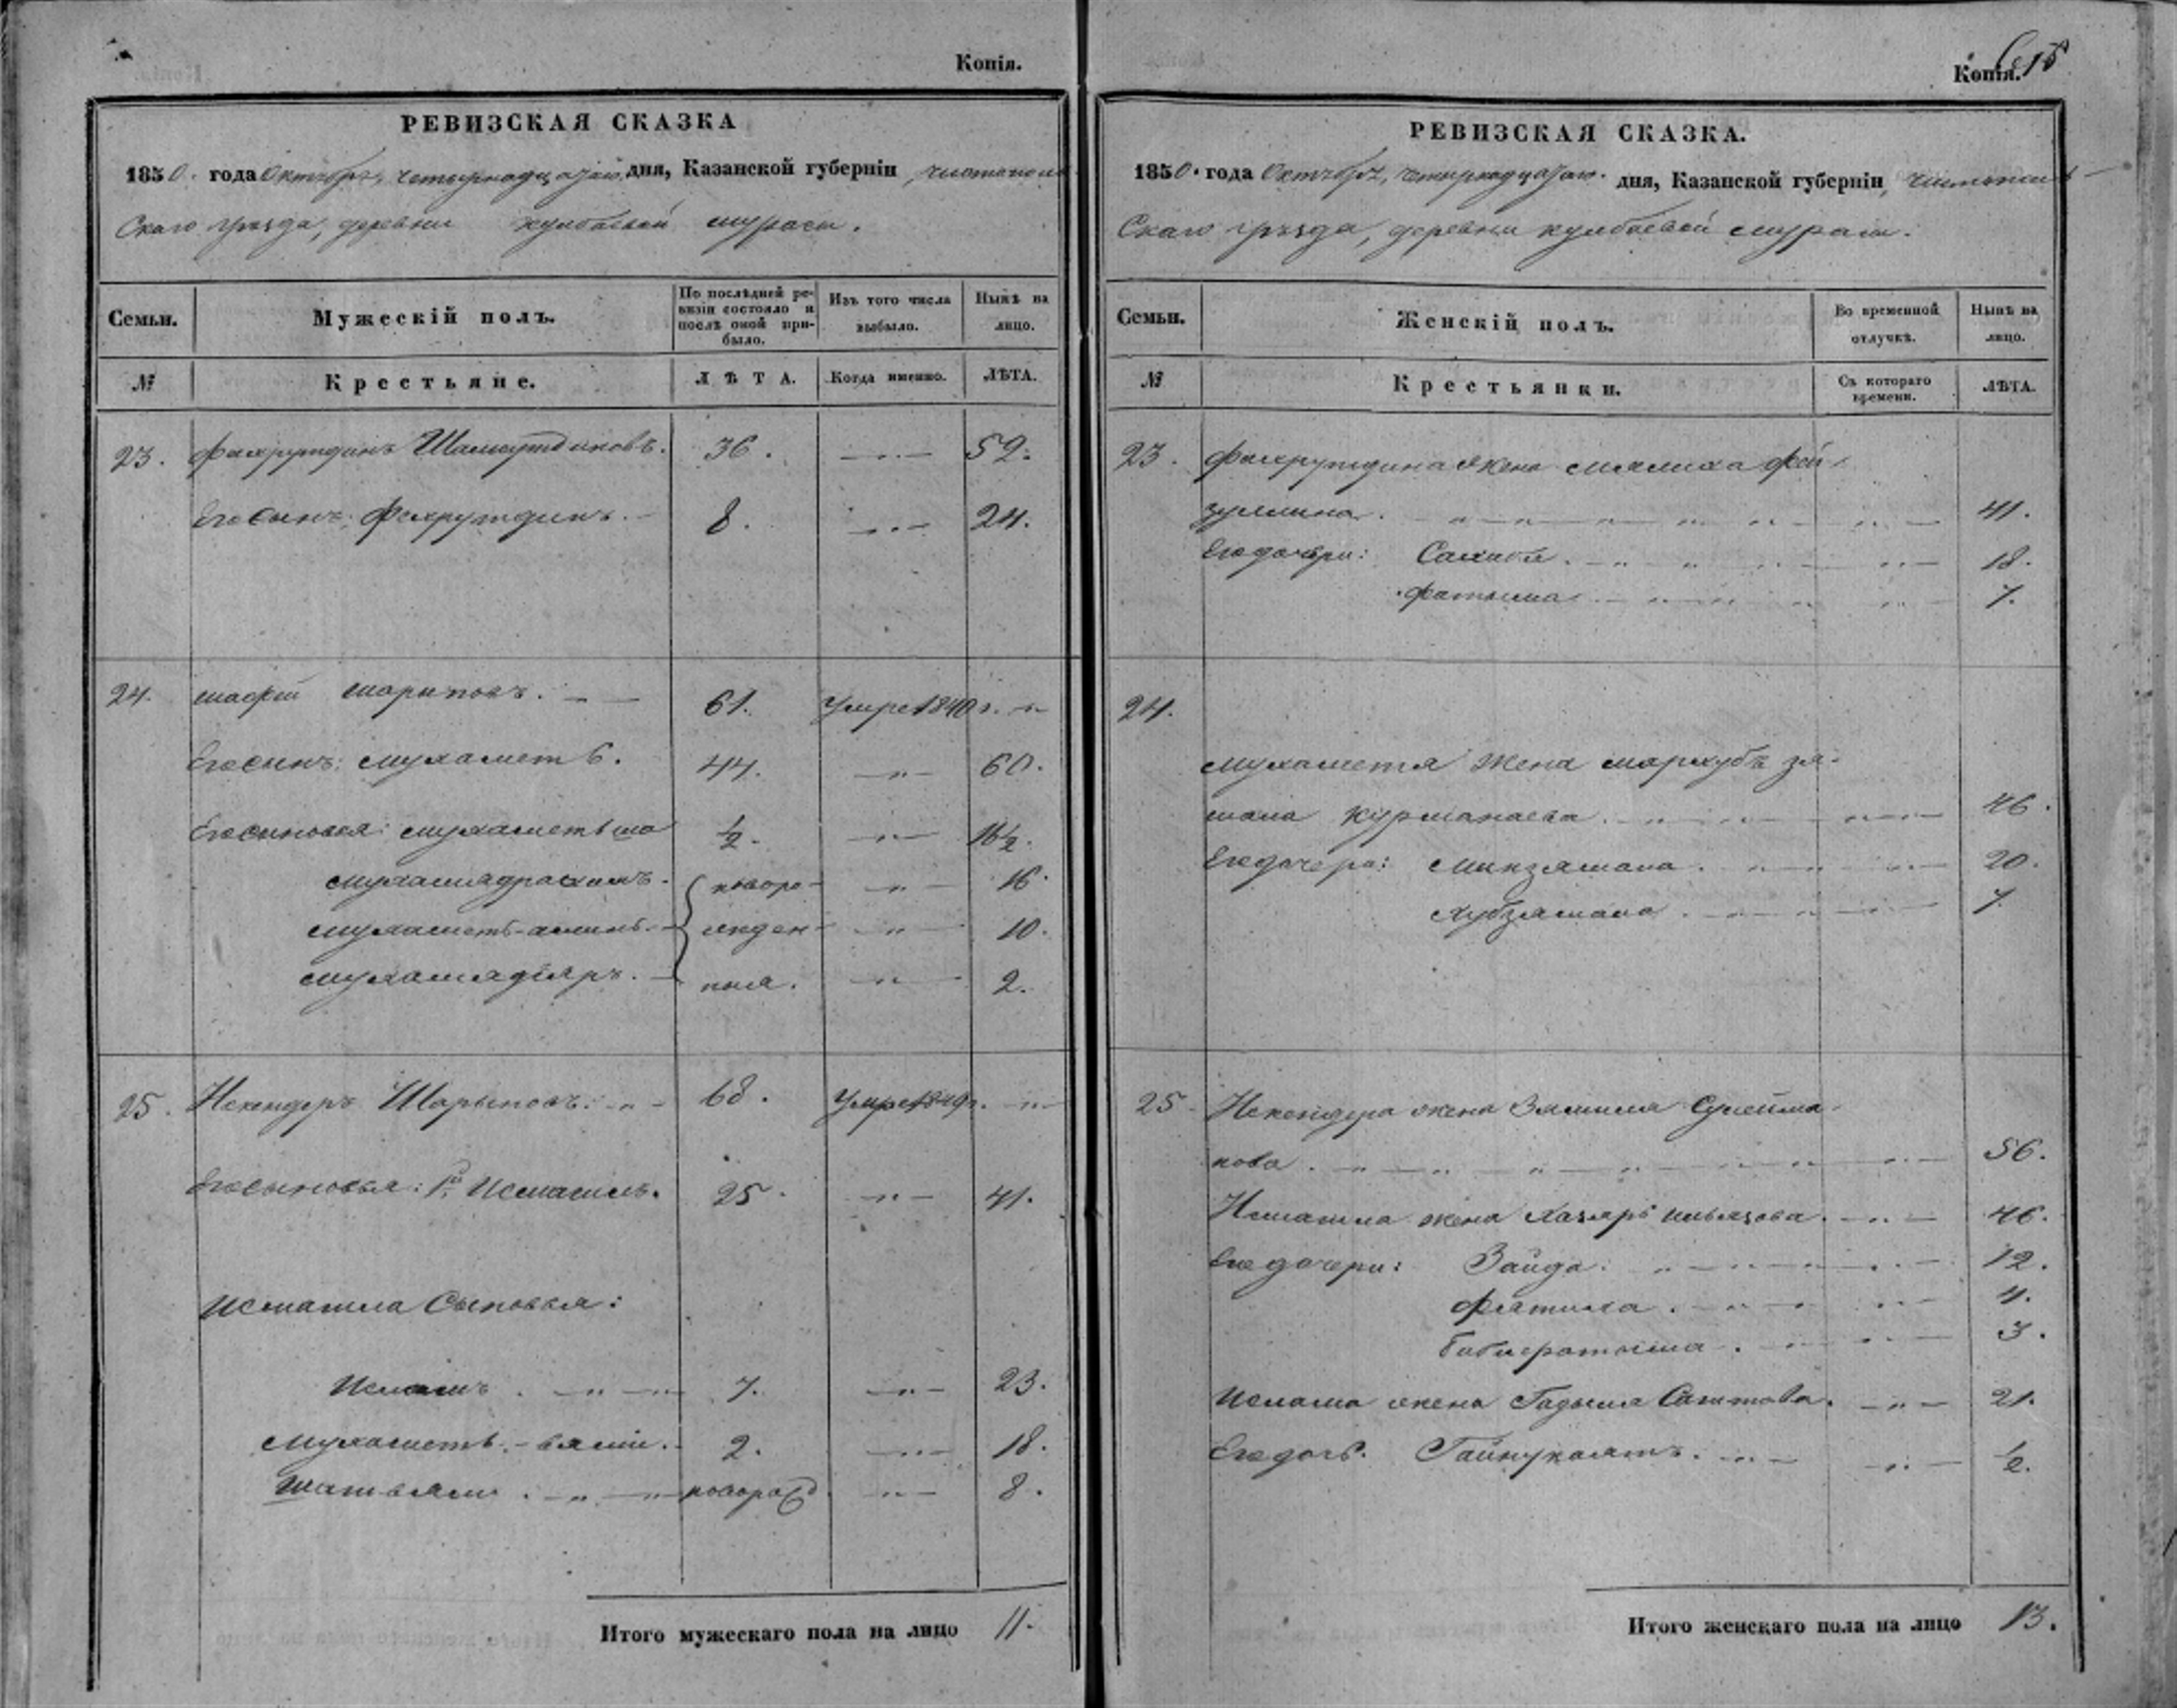 Копія.
РЕВИЗСКАЯ СКАЗКА
1850. года Октября, четырнадцатаго дня, Казанской губерніи, чистополь-
скаго уѣзда, деревни кулбаевой мурасы.
Семьи.
Мужескій полъ.
По послѣдней ре-
визіи состояло и
послѣ оной при-
было.
Изъ того числа
выбыло.
Нынѣ на
лицо.
№
Крестьяне.
ЛѢТА.
Когда именно.
ЛѢТА.
23. Фахрутдинъ Шамсутдиновъ. 36. —„— 52.
Его сынъ: Фахрутдинъ. 8. —„— 24.
24. шафѣй шарыповъ. — — 61. Умре 1840 г. —„—
Его сынъ: мухаметъ. 44. —„— 60.
Его сыновья: мухаметьша ½. —„— 16½.
мухамядрахимъ. новоро- —„— 16.
мухаметъ-аминь. жден- —„— 10.
мухамядіяръ. ныя. —„— 2.
25. Искендеръ Шарыповъ. —„— 68. Умре 1849 г. —„—
Его сыновья: 1й Исмагилъ. 25. —„— 41.
Исмагила Сыновья:
Исламъ. —„— 7. —„— 23.
Мухаметь-вялій. 2. —„— 18.
Шагивали. —„— новорожд —„— 8.
Итого мужескаго пола на лицо 11.
Копія. 615
РЕВИЗСКАЯ СКАЗКА.
1850. года Октября, четырнадцатаго. дня, Казанской губерніи, чистополь-
скаго уѣзда, деревни кулбаевой мурасы.
Семьи.
Женскій полъ.
Во временной
отлучкѣ.
Нынѣ на
лицо.
№
Крестьянки.
Съ котораго
времени.
ЛѢТА.
23. Фахрутдина жена мялиха фей-
зуллина. —„— 41.
Его дочери: Сахибя. —„— 18.
фатыма. —„— 7.
24.
мухаметя жена мархубъ зя-
мала курманаева. —„— 46.
Его дочери: минзямала. —„— 20.
хубзямала. —„— 7.
25. Искендера жена Зямиля Сулейма-
нова. —„— 56.
Исмагила жена Хазярь ильязова. —„— 46.
Его дочери: Зайда. —„— 12.
Фатиха. —„— 4.
бибифатыма. —„— 3.
Ислама жена Гадыля Сагитова. —„— 21.
Его дочь. Гайнукаятъ. —„— ½.
Итого женскаго пола на лицо 13.